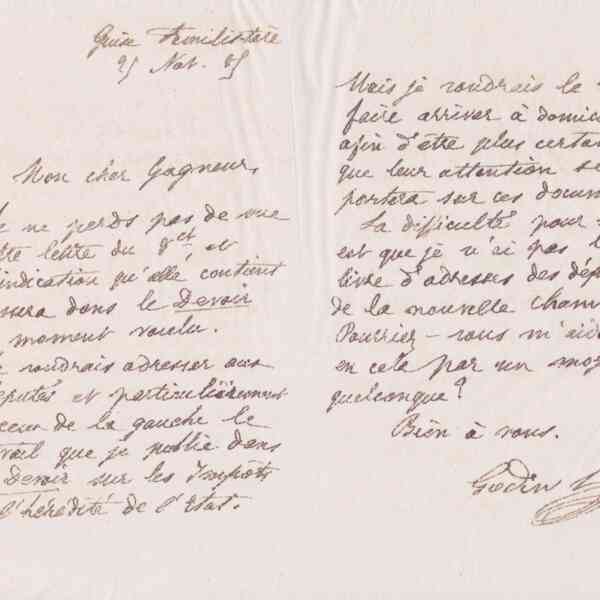 Guise Familistère
25 Nov. 85
Mon cher Gagneur,
ne perds pas de vue
lettre du 8 ct et
indication qu'elle contient
dans le Devoir
moment voulu.
voudrais adresser aux
députés et particulièrement
ceux de la gauche le
travail que je publie dans
Devoir sur les Impôts
l'hérédité de l'Etat.
Mais je voudrais le
faire arriver à domic
afin d'être plus certain
que leur attention se
portera sur ces docum
La difficulté pour
est que je n'ai pas l
livre d'adresses des dép
de la nouvelle Cham
Pourriez-vous m'aid
en cela par un moy
quelconque?
Bien à vous.
Godin